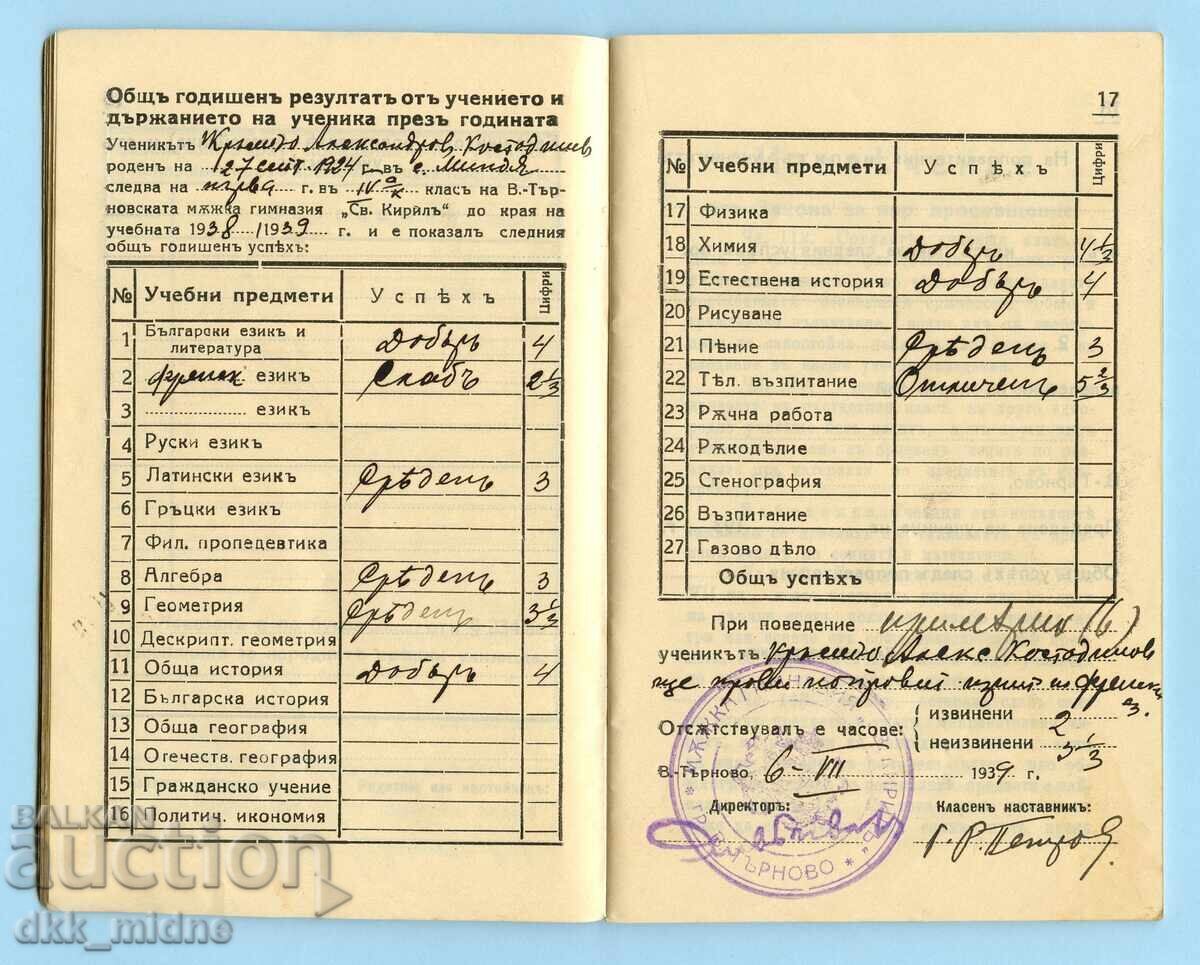 Общъ годишенъ резултатъ отъ учението и
държанието на ученика презъ годината
Ученикътъ Крѫстьо Александровъ Костадинов
роденъ на 27 септ. 1924 г. въ с. Миндя
следва на първа г. въ IV а кл. класъ на В.-Тър-
новската мѫжка гимназия „Св. Кирилъ“ до края на
учебната 1938 / 1939 г. и е показалъ следния
общъ годишенъ успѣхъ:
№ Учебни предмети Успѣхъ Цифри
1 Български езикъ и литература Добъръ 4
2 френск езикъ Слабъ 2 1/3
3 езикъ
4 Руски езикъ
5 Латински езикъ Срѣденъ 3
6 Гръцки езикъ
7 Фил. пропедевтика
8 Алгебра Срѣденъ 3
9 Геометрия Срѣденъ 3 1/3
10 Дескрипт. геометрия
11 Обща история Добъръ 4
12 Българска история
13 Обща география
14 Отечеств. география
15 Гражданско учение
16 Политич. икономия
17
№ Учебни предмети Успѣхъ Цифри
17 Физика
18 Химия Добъръ 4 1/3
19 Естествена история Добъръ 4
20 Рисуване
21 Пѣние Срѣденъ 3
22 Тѣл. възпитание Отличенъ 5 2/3
23 Рѫчна работа
24 Рѫкодѣлие
25 Стенография
26 Възпитание
27 Газово дѣло
Общъ успѣхъ
При поведение примѣрно (6)
ученикътъ Крѫстьо Алекс. Костадинов
ще прави поправит. изпит по френски
ез.
Отсѫтствувалъ е часове: извинени 2
неизвинени 3 1/3
В.-Търново, 6 - VII 1939 г.
Директоръ: Класенъ наставникъ:
Г. Р. Петров
BALKAN
auction
dkk_midne